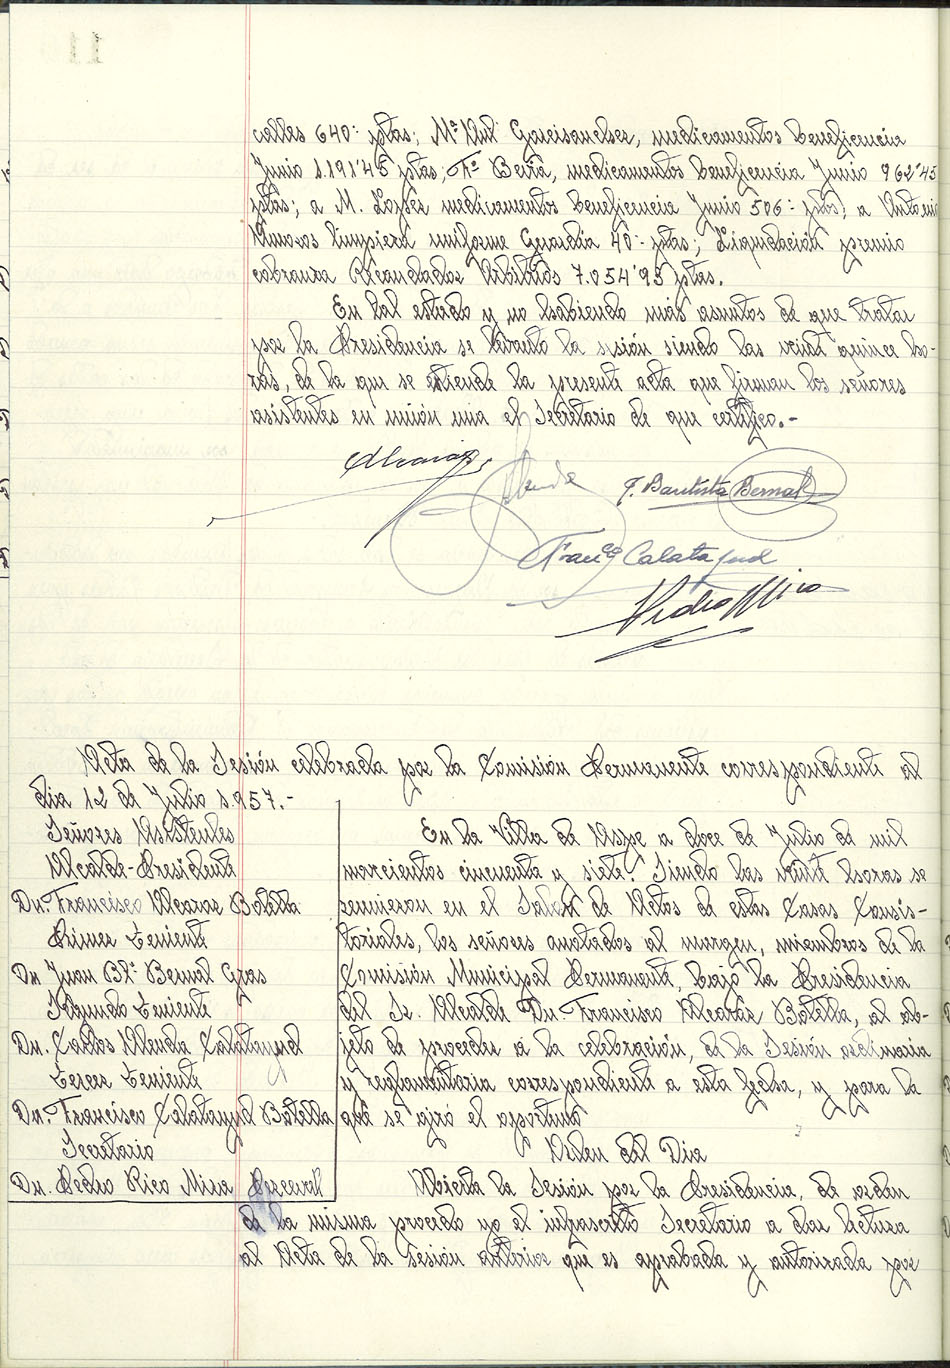 calles 640'- ptas; Mª Ant. Garcisanchez, medicamentos beneficencia
Junio 1.191'45 ptas; Fº Beviá, medicamentos beneficencia Junio 962'45
ptas; a M. López medicamentos beneficencia Junio 506'- ptas; a Antonio
Amoros limpieza uniforme Guardia 40'- ptas; Liquidación premio
cobranza Recaudador Arbitrios 7.054'93 ptas.
En tal estado y no habiendo más asuntos de que tratar
por la Presidencia se levantó la sesión siendo las veinte quince ho-
ras, de la que se extiende la presente acta que firman los señores
asistentes en unión mia el Secretario de que certifico.-
Alcaraz
Almida J. Bautista Bernal
Franco Calatayud
Pedro Rico
Acta de la Sesión celebrada por la Comisión Permanente correspondiente al
dia 12 de Julio 1.957.-
Señores Asistentes
Alcalde-Presidente
Dn. Francisco Alcaraz Botella
Primer Teniente
Dn Juan Btª Bernal Gras
Segundo Teniente
Dn. Carlos Almida Calatayud
Tercer Teniente
Dn. Francisco Calatayud Botella
Secretario
Dn. Pedro Rico Mira Acceval
En la Villa de Aspe a doce de Julio de mil
novecientos cincuenta y siete. Siendo las veinte horas se
reunieron en el Salón de Actos de estas Casas Consis-
toriales, los señores anotados al margen, miembros de la
Comisión Municipal Permanente, bajo la Presidencia
del Sr. Alcalde Dn. Francisco Alcaraz Botella, al ob-
jeto de proceder a la celebración, de la Sesión ordinaria
y reglamentaria correspondiente a esta fecha, y para la
que se giró el oportuno
Orden del Dia
Abierta la Sesión por la Presidencia, de orden
de la misma procedo yo el infrascrito Secretario a dar lectura
al Acta de la Sesión anterior que es aprobada y autorizada por